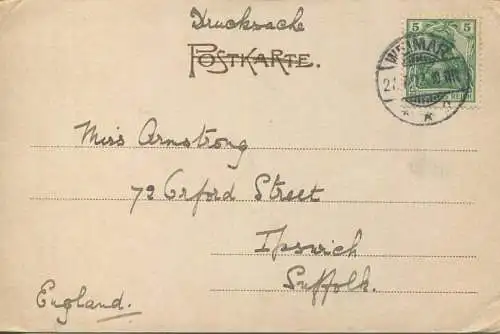 Drucksache
POSTKARTE.
5 5
WEIMAR
Miss Armstrong
72 Orford Street
Ipswich
Suffolk.
England.